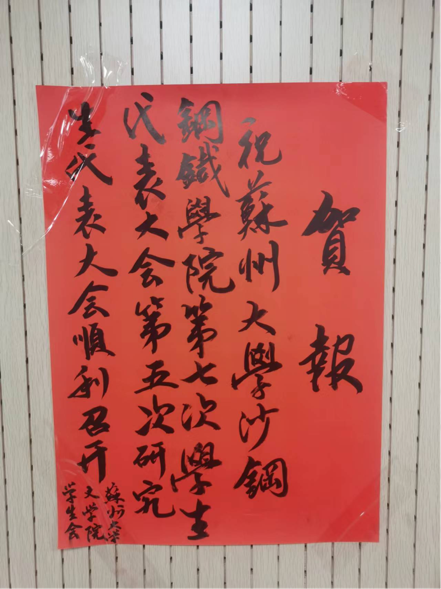 賀報
祝蘇州大學沙鋼
鋼鐵學院第七次學生
代表大会第五次研究
生代表大会順利召开
蘇州大學
文学院
学生会